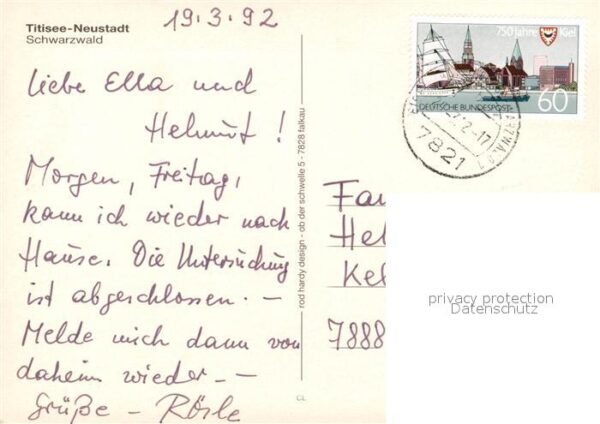 Titisee-Neustadt
Schwarzwald
19.3.92
Liebe Ella und
Helmut!
Morgen, Freitag,
kann ich wieder nach
Hause. Die Untersuchung
ist abgeschlossen. –
Melde mich dann von
daheim wieder. –
Grüße – Rösle
CL
rod hardy design - ob der schwelle 5 - 7828 falkau
750 Jahre Kiel
DEUTSCHE BUNDESPOST
60
7821
Fa
Hel
Kel
7888
privacy protection
Datenschutz